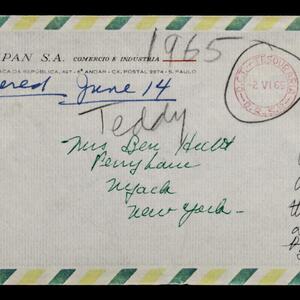 PAN S.A. COMERCIO E INDUSTRIA
1965
ACA DA REPÚBLICA, 497 - 8º ANDAR - CX. POSTAL 2974 - S. PAULO
ered June 14
2 VI 65
Teddy
Mrs Ben Hecht
Perry Lane
Nyack
New York